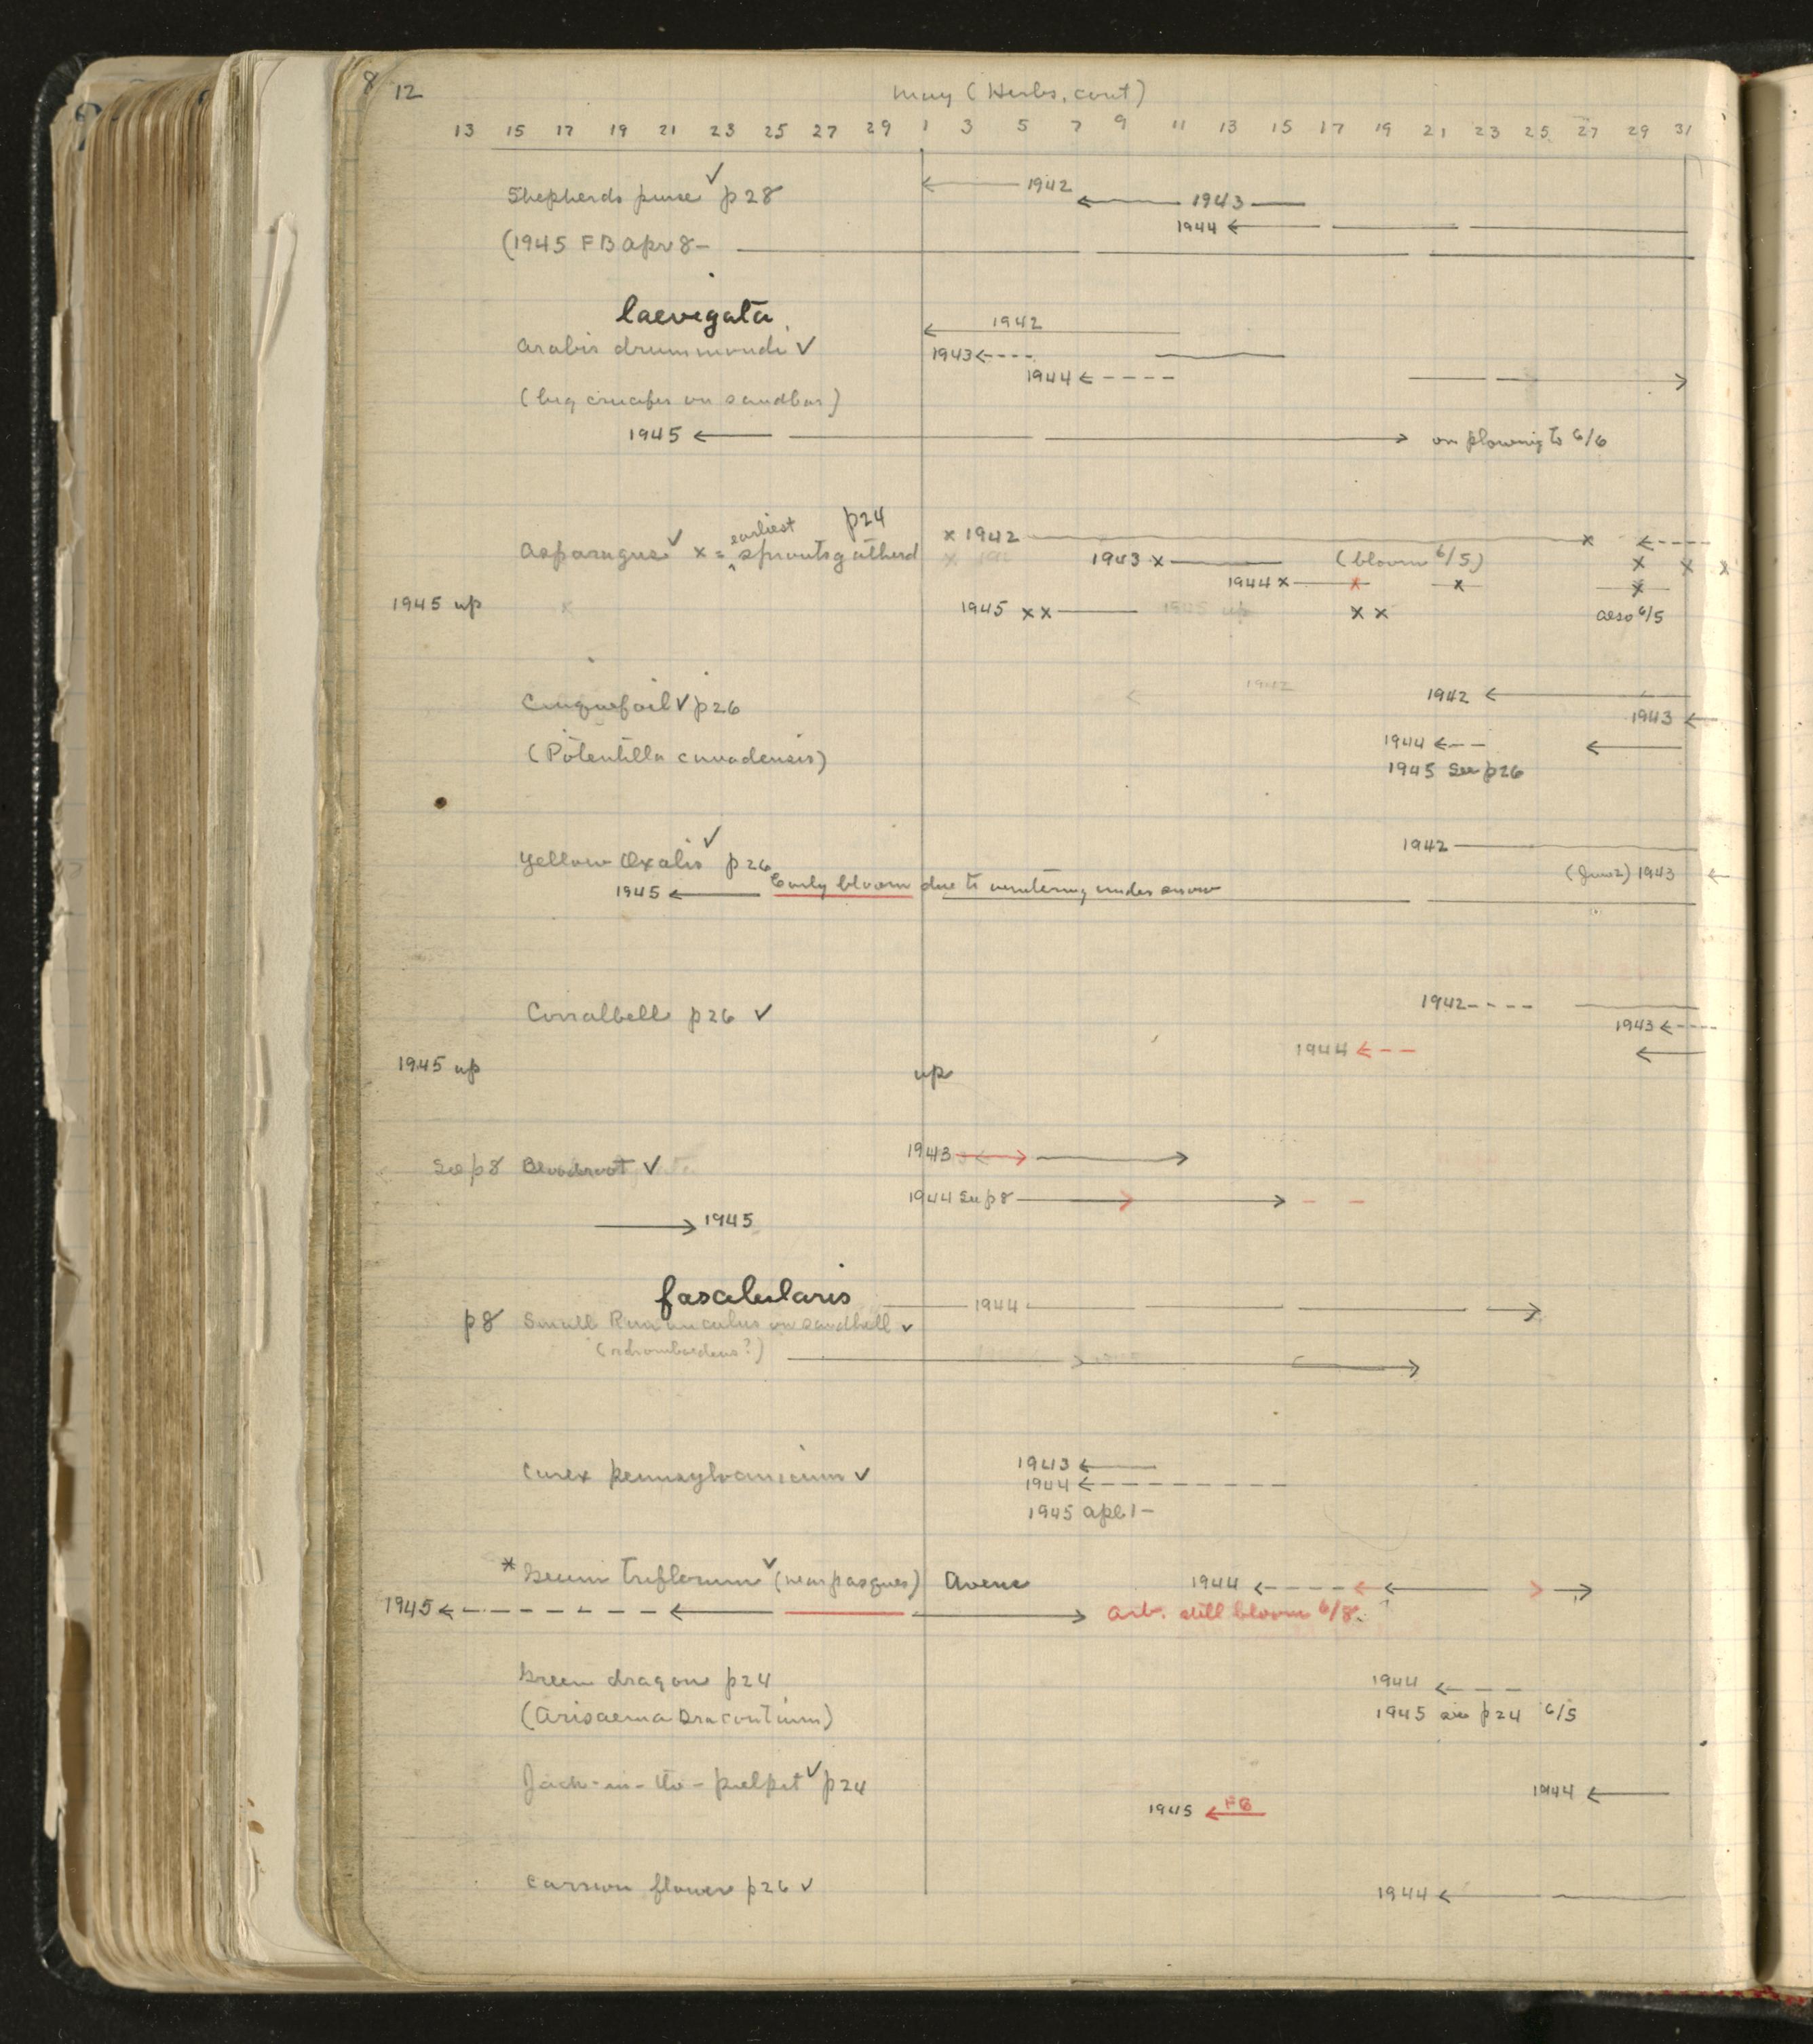 8 12 May (Herbs, cont)
13 15 17 19 21 23 25 27 29 1 3 5 7 9 11 13 15 17 19 21 23 25 27 29 31
Shepherds purse ✓ p28
1942
1943
1944
(1945 FB Apr 8–
laevigata
Arabis drummondi ✓
1942
1943
1944
(big crucifer on sandbar)
1945 on plowing to 6/6
Asparagus ✓ x = earliest sprouts gathered p24
x 1942 x
1943 x (bloom 6/5) x x x
1944 x x x x
1945 up 1945 x x x x also 6/5
Cinquefoil ✓ p26
1942
1942
1943
(Potentilla canadensis)
1944
1945 See p26
Yellow Oxalis ✓ p26
1942
(June 2) 1943
1945 Early bloom due to wintering under snow
Corralbell p26 ✓
1942
1943
1944
1945 up up
See p8 Bloodroot ✓
1943
1944 See p8
1945
fascicularis
p8 Small Ranunculus on sandhill ✓
1944
(rhomboideus?)
Carex pennsylvanicum ✓
1943
1944
1945 Apl 1–
* Geum triflorum ✓ (near pasques) Avens
1944
1945 Arb. still bloom 6/8
Green dragon p24
1944
(Arisaema Dracontium)
1945 see p24 6/5
Jack-in-the-pulpit ✓ p24
1944
1945 FB
Carrion flower p26 ✓
1944